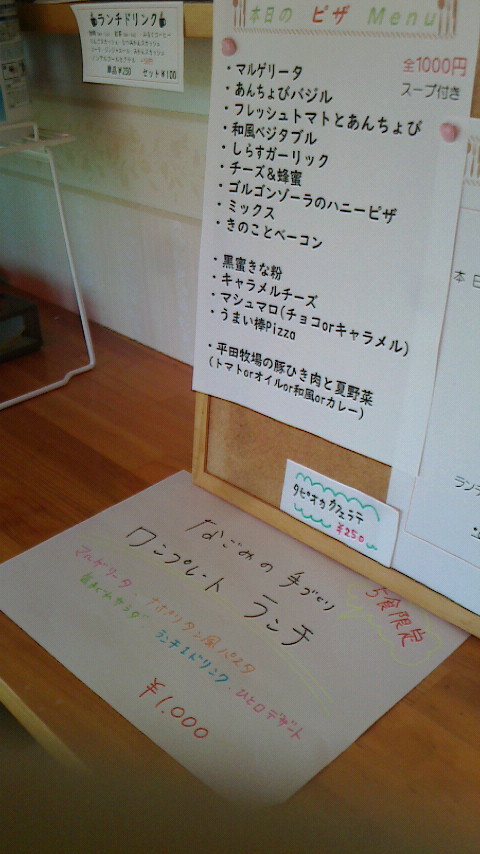 ランチドリンク
単品¥250 セット¥100
本日の ピザ Menu
全1000円
スープ付き
・マルゲリータ
・あんちょびバジル
・フレッシュトマトとあんちょび
・和風ベジタブル
・しらすガーリック
・チーズ&蜂蜜
・ゴルゴンゾーラのハニーピザ
・ミックス
・きのことベーコン
・黒蜜きな粉
・キャラメルチーズ
・マシュマロ(チョコorキャラメル)
・うまい棒Pizza
・平田牧場の豚ひき肉と夏野菜
(トマトorオイルor和風orカレー)
本日
ラン
タピオカカフェラテ
¥250
なごみの手づくり
ワンプレート ランチ
5食限定
マルゲリータ・ナポリタン風パスタ
サラダ・ランチ1ドリンク・ひと口デザート
¥1,000